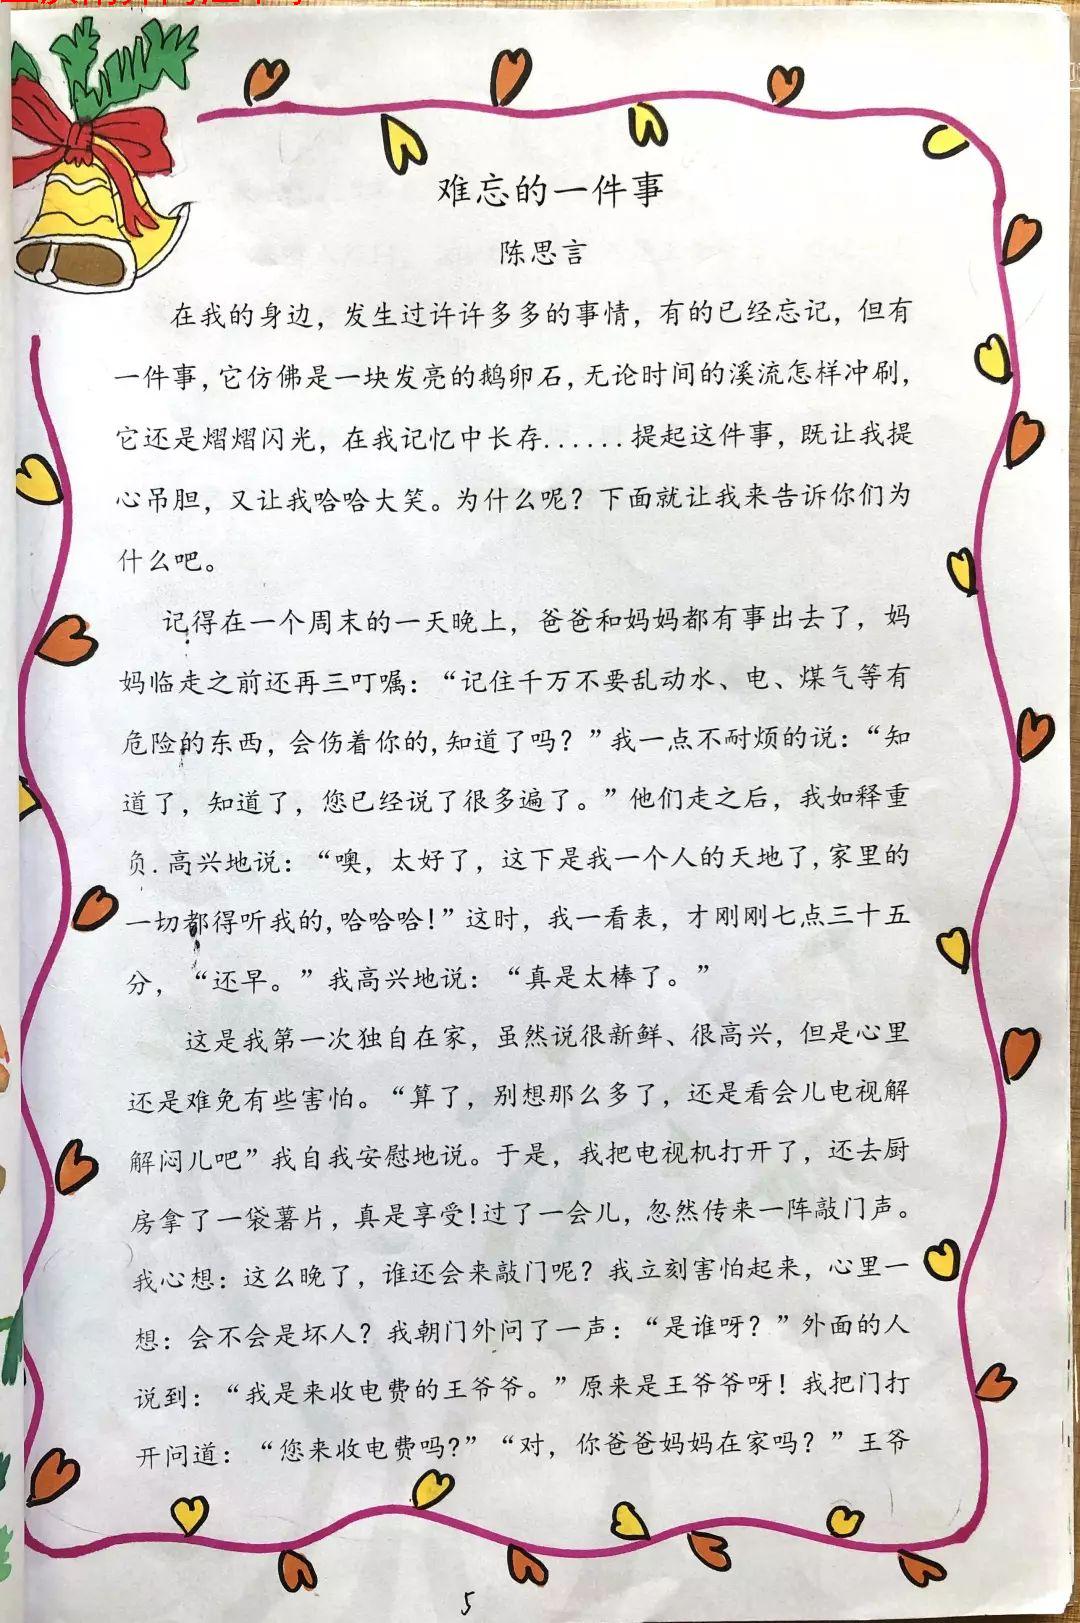 难忘的一件事
陈思言
在我的身边，发生过许许多多的事情，有的已经忘记，但有
一件事，它仿佛是一块发亮的鹅卵石，无论时间的溪流怎样冲刷，
它还是熠熠闪光，在我记忆中长存......提起这件事，既让我提
心吊胆，又让我哈哈大笑。为什么呢？下面就让我来告诉你们为
什么吧。
记得在一个周末的一天晚上，爸爸和妈妈都有事出去了，妈
妈临走之前还再三叮嘱：“记住千万不要乱动水、电、煤气等有
危险的东西，会伤着你的，知道了吗？”我一点不耐烦的说：“知
道了，知道了，您已经说了很多遍了。”他们走之后，我如释重
负.高兴地说：“噢，太好了，这下是我一个人的天地了，家里的
一切都得听我的，哈哈哈！”这时，我一看表，才刚刚七点三十五
分，“还早。”我高兴地说：“真是太棒了。”
这是我第一次独自在家，虽然说很新鲜、很高兴，但是心里
还是难免有些害怕。“算了，别想那么多了，还是看会儿电视解
解闷儿吧”我自我安慰地说。于是，我把电视机打开了，还去厨
房拿了一袋薯片，真是享受！过了一会儿，忽然传来一阵敲门声。
我心想：这么晚了，谁还会来敲门呢？我立刻害怕起来，心里一
想：会不会是坏人？我朝门外问了一声：“是谁呀？”外面的人
说到：“我是来收电费的王爷爷。”原来是王爷爷呀！我把门打
开问道：“您来收电费吗?”“对，你爸爸妈妈在家吗？”王爷
5